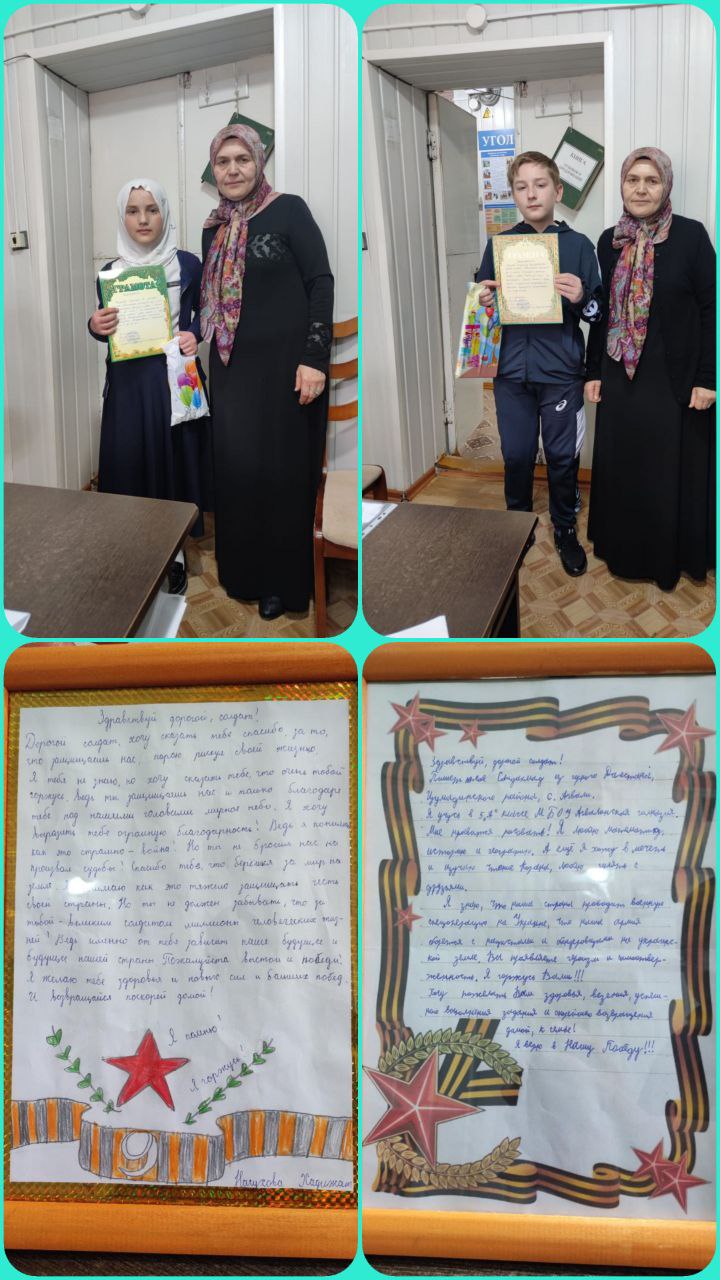 ГРАМОТА
УГОЛ
КНИГА
ГРАМОТА
Здравствуй дорогой, солдат!
Дорогой солдат, хочу сказать тебе спасибо за то,
что защищаешь нас, порою рискуя своей жизнью.
Я тебя не знаю, но хочу сказать тебе, что очень тобой
горжусь. Ведь ты защищаешь нас и только благодаря
тебе над нашими головами мирное небо. Я хочу
выразить тебе огромную благодарность! Ведь я понимаю
как это страшно - война! Но ты не бросил нас на
произвол судьбы! Спасибо тебе, что борешся за мир на
земле. Я понимаю как это тяжело защищать честь
своей страны. Но ты не должен забывать, что за
тобой - великим солдатом миллионы человеческих жиз-
ней! Ведь именно от тебя зависит наше будущее и
будущее нашей страны. Пожалуйста выстои и победи!
Я желаю тебе здоровья и новых сил и больших побед.
И возвращайся поскорей домой!
Я помню!
Я горжусь!
9
Хадижат
Здравствуй, дорогой солдат!
Пишет тебе из
района, с.
Я учусь в 5 классе МБОУ гимназия.
Мне нравится рисовать! Я люблю математику,
историю и А ещё я хожу в мечеть
и изучаю чтение Корана, люблю гулять с
друзьями.
Я знаю, что наша страна проводит военную
спецоперацию на Украине, что наша армия
борется с нацистами и бандеровцами на украинс-
кой земле. Вы проявляете героизм и самоотвер-
женность. Я горжусь Вами!!!
Хочу пожелать Вам здоровья, везения, успеш-
ного выполнения задания и скорейшего возвращения
домой, к семье!
Я верю в Нашу Победу!!!